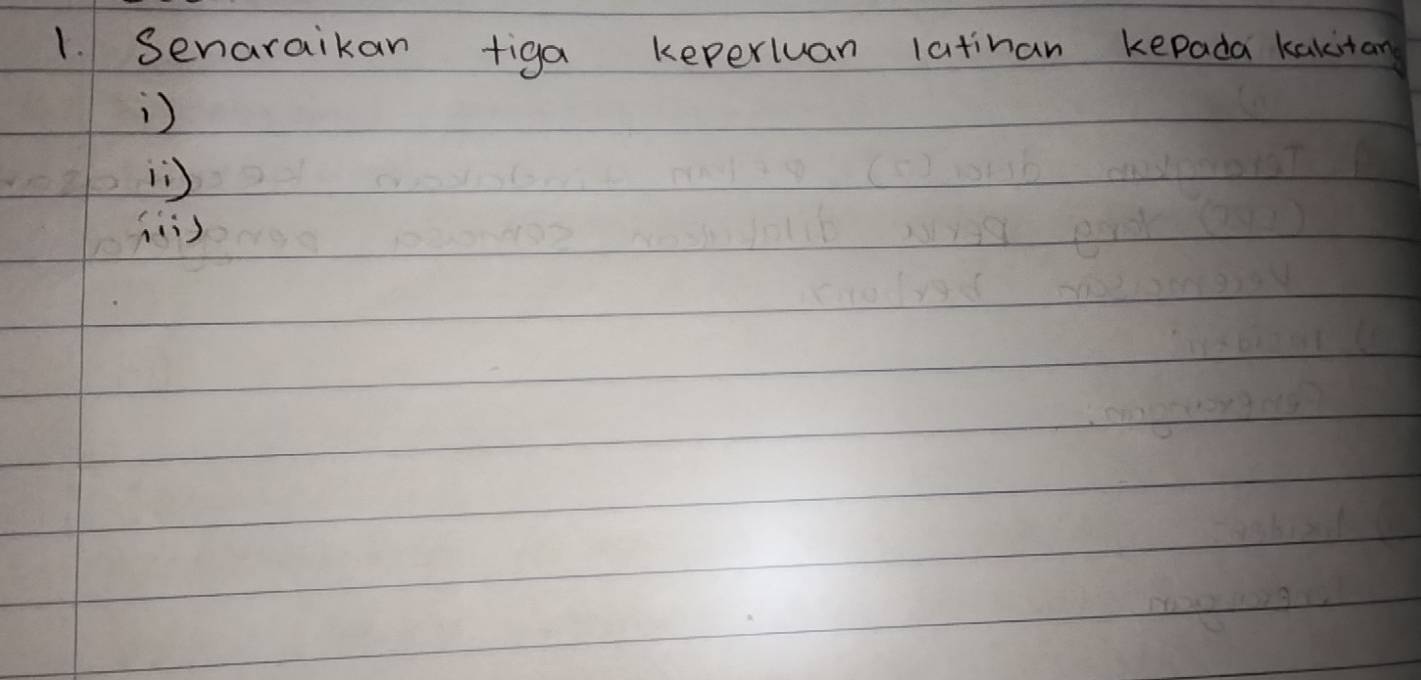 1. Senaraikan tiga keperluan latihan kepada kakitang
i)
ii)
iii)